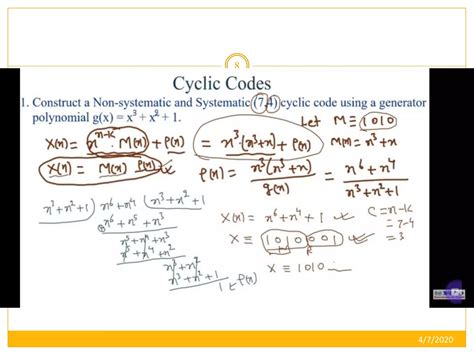 8
Cyclic Codes
1. Construct a Non-systematic and Systematic (7,4) cyclic code using a generator
polynomial g(x) = x³ + x² + 1.
Let M ≡ 1010
X(x) = x^(n-k) · M(x) + P(x) = x³·(x³+x) + P(x) M(x) = x³+x
X(x) = M(x) P(x)
P(x) = x³(x³+x) / g(x) = x⁶+x⁴ / x³+x²+1
x³+x²+1 ) x⁶+x⁴ ( x³+x²+1
x⁶+x⁵+x³
x⁵+x⁴+x³
x⁵+x⁴+x²
x³+x²
x³+x²+1
1 ← P(x)
X(x) = x⁶+x⁴+1
C = n-k
= 7-4
= 3
X ≡ 1010001
M
X ≡ 1010
4/7/2020